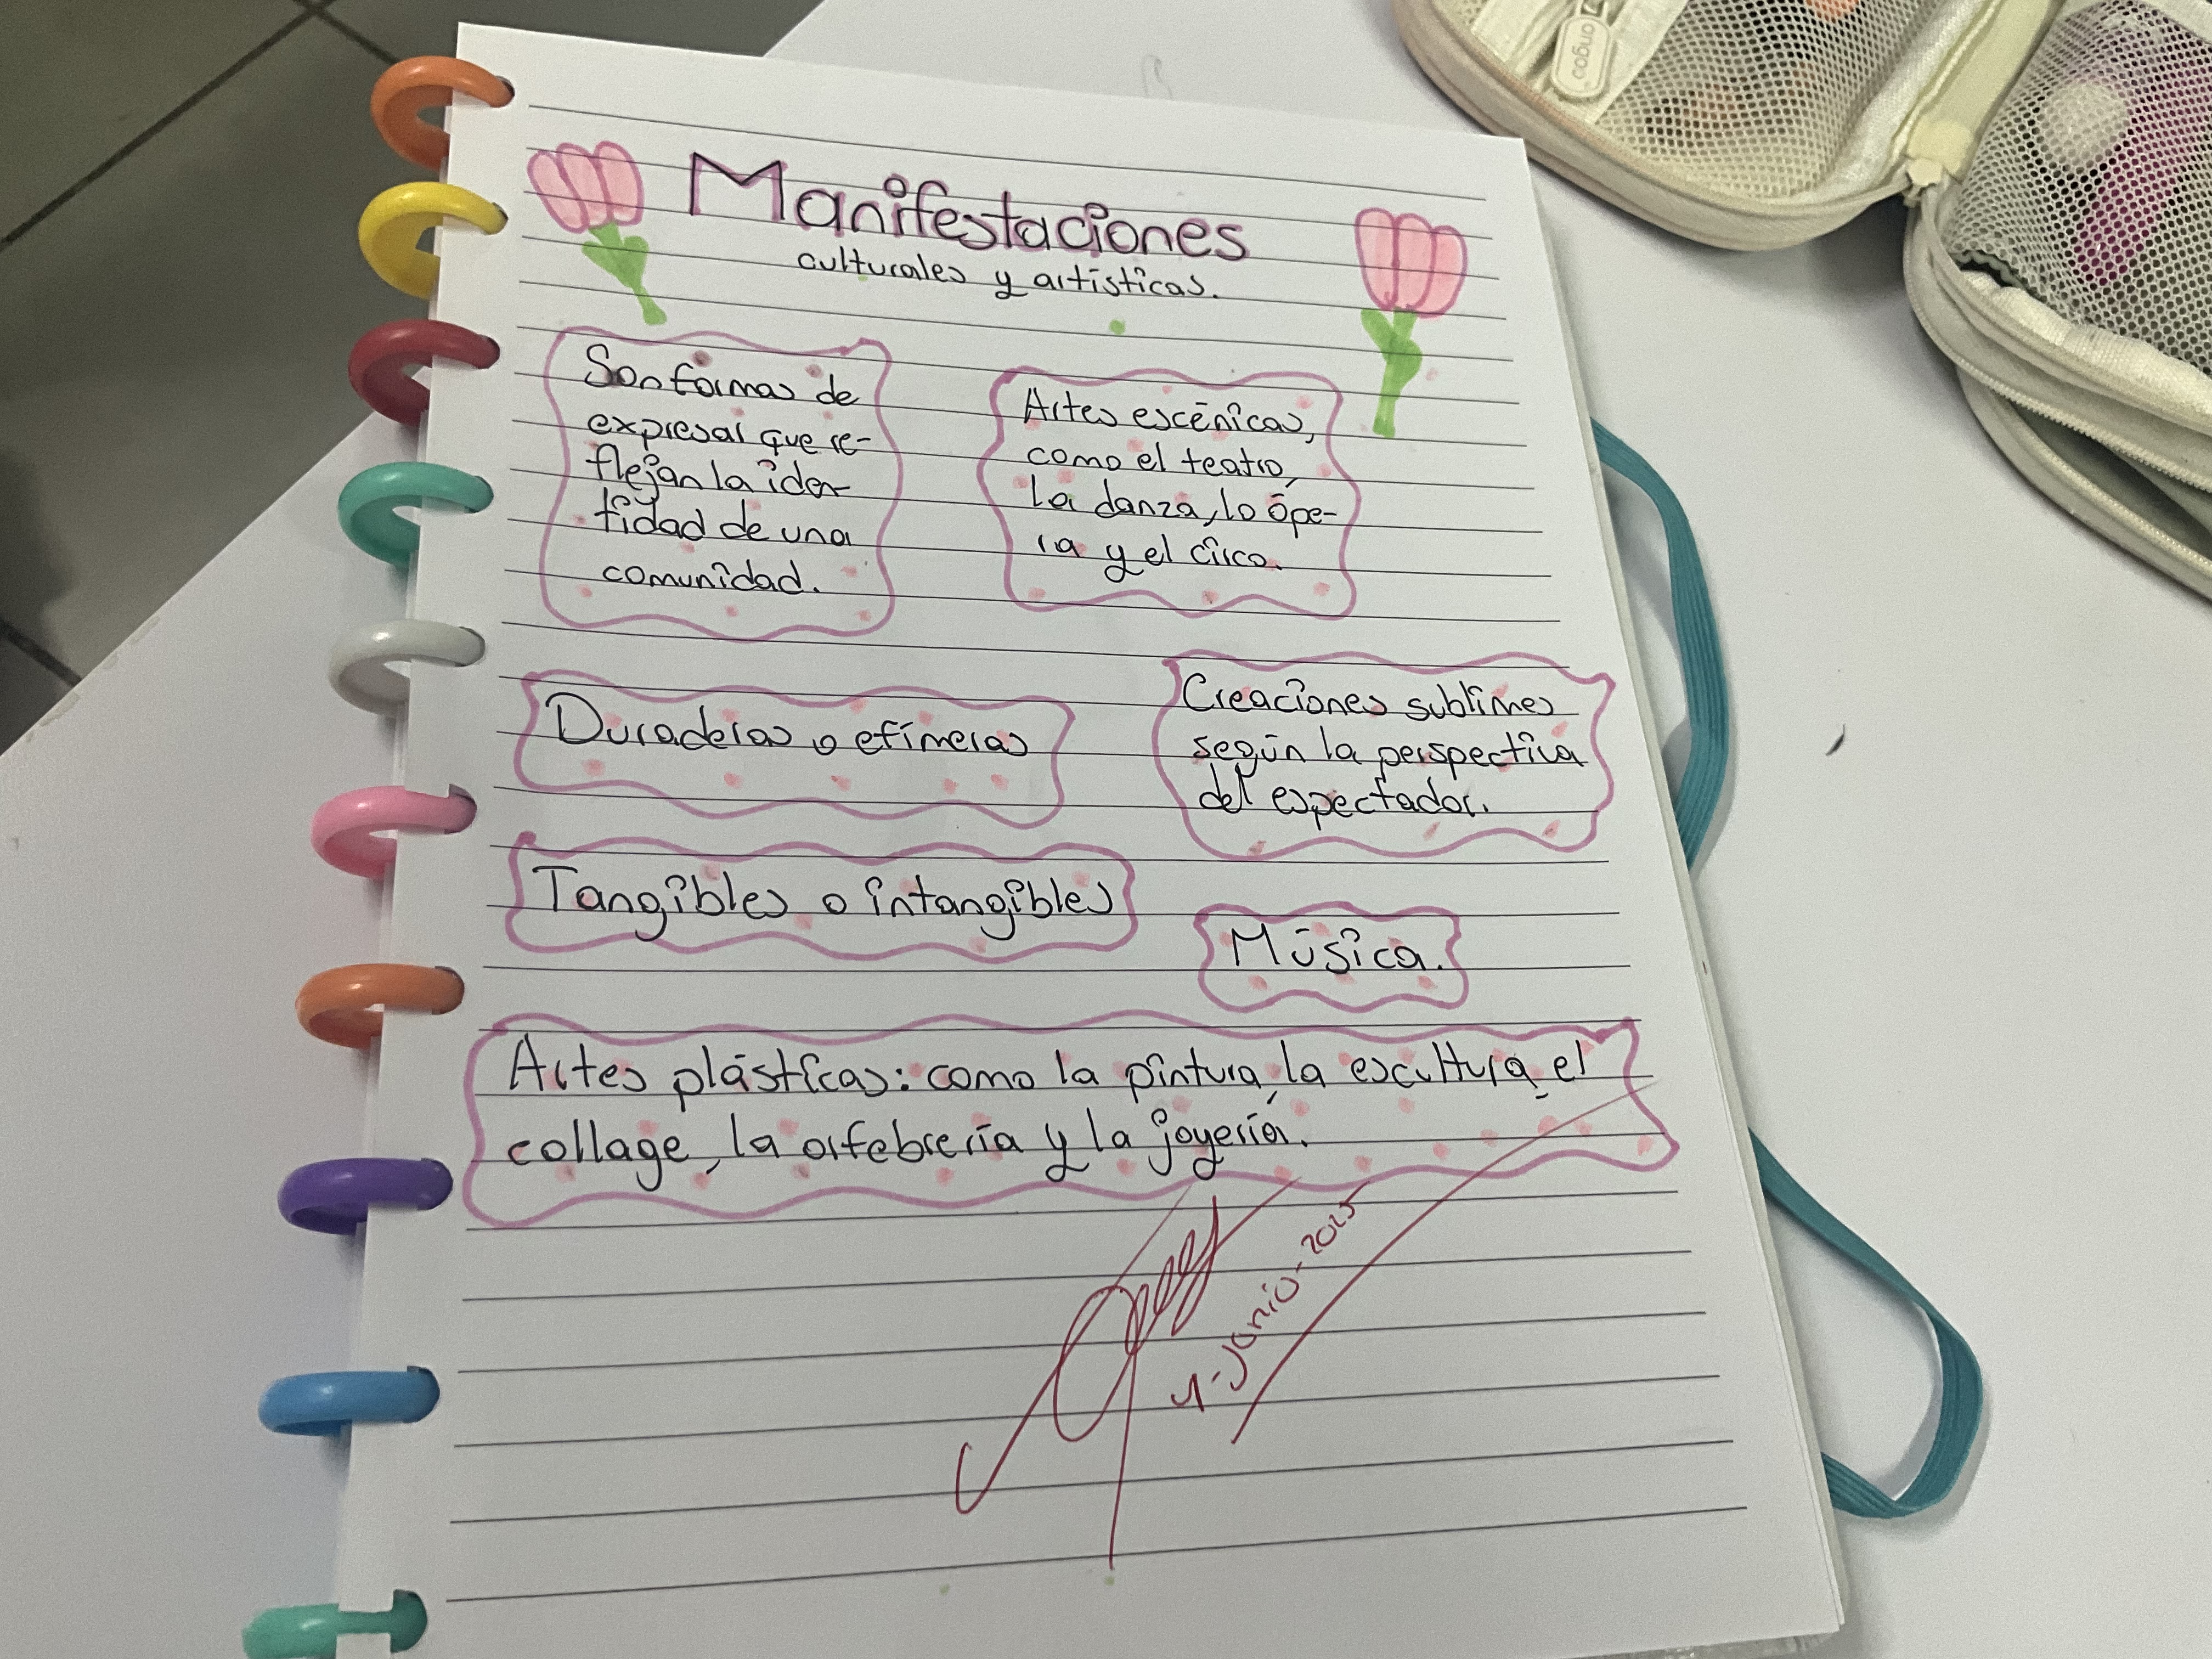 Manifestaciones
culturales y artísticas.
Son formas de
expresar que re-
flejan la iden-
tidad de una
comunidad.
Artes escénicas,
como el teatro,
la danza, lo ópe-
ra y el circo.
Duraderas o efímeras
Creaciones sublimes
según la perspectiva
del espectador.
Tangibles o intangibles
Música.
Artes plásticas: como la pintura, la escultura, el
collage, la orfebrería y la joyería.
Junio-2025
ongoo